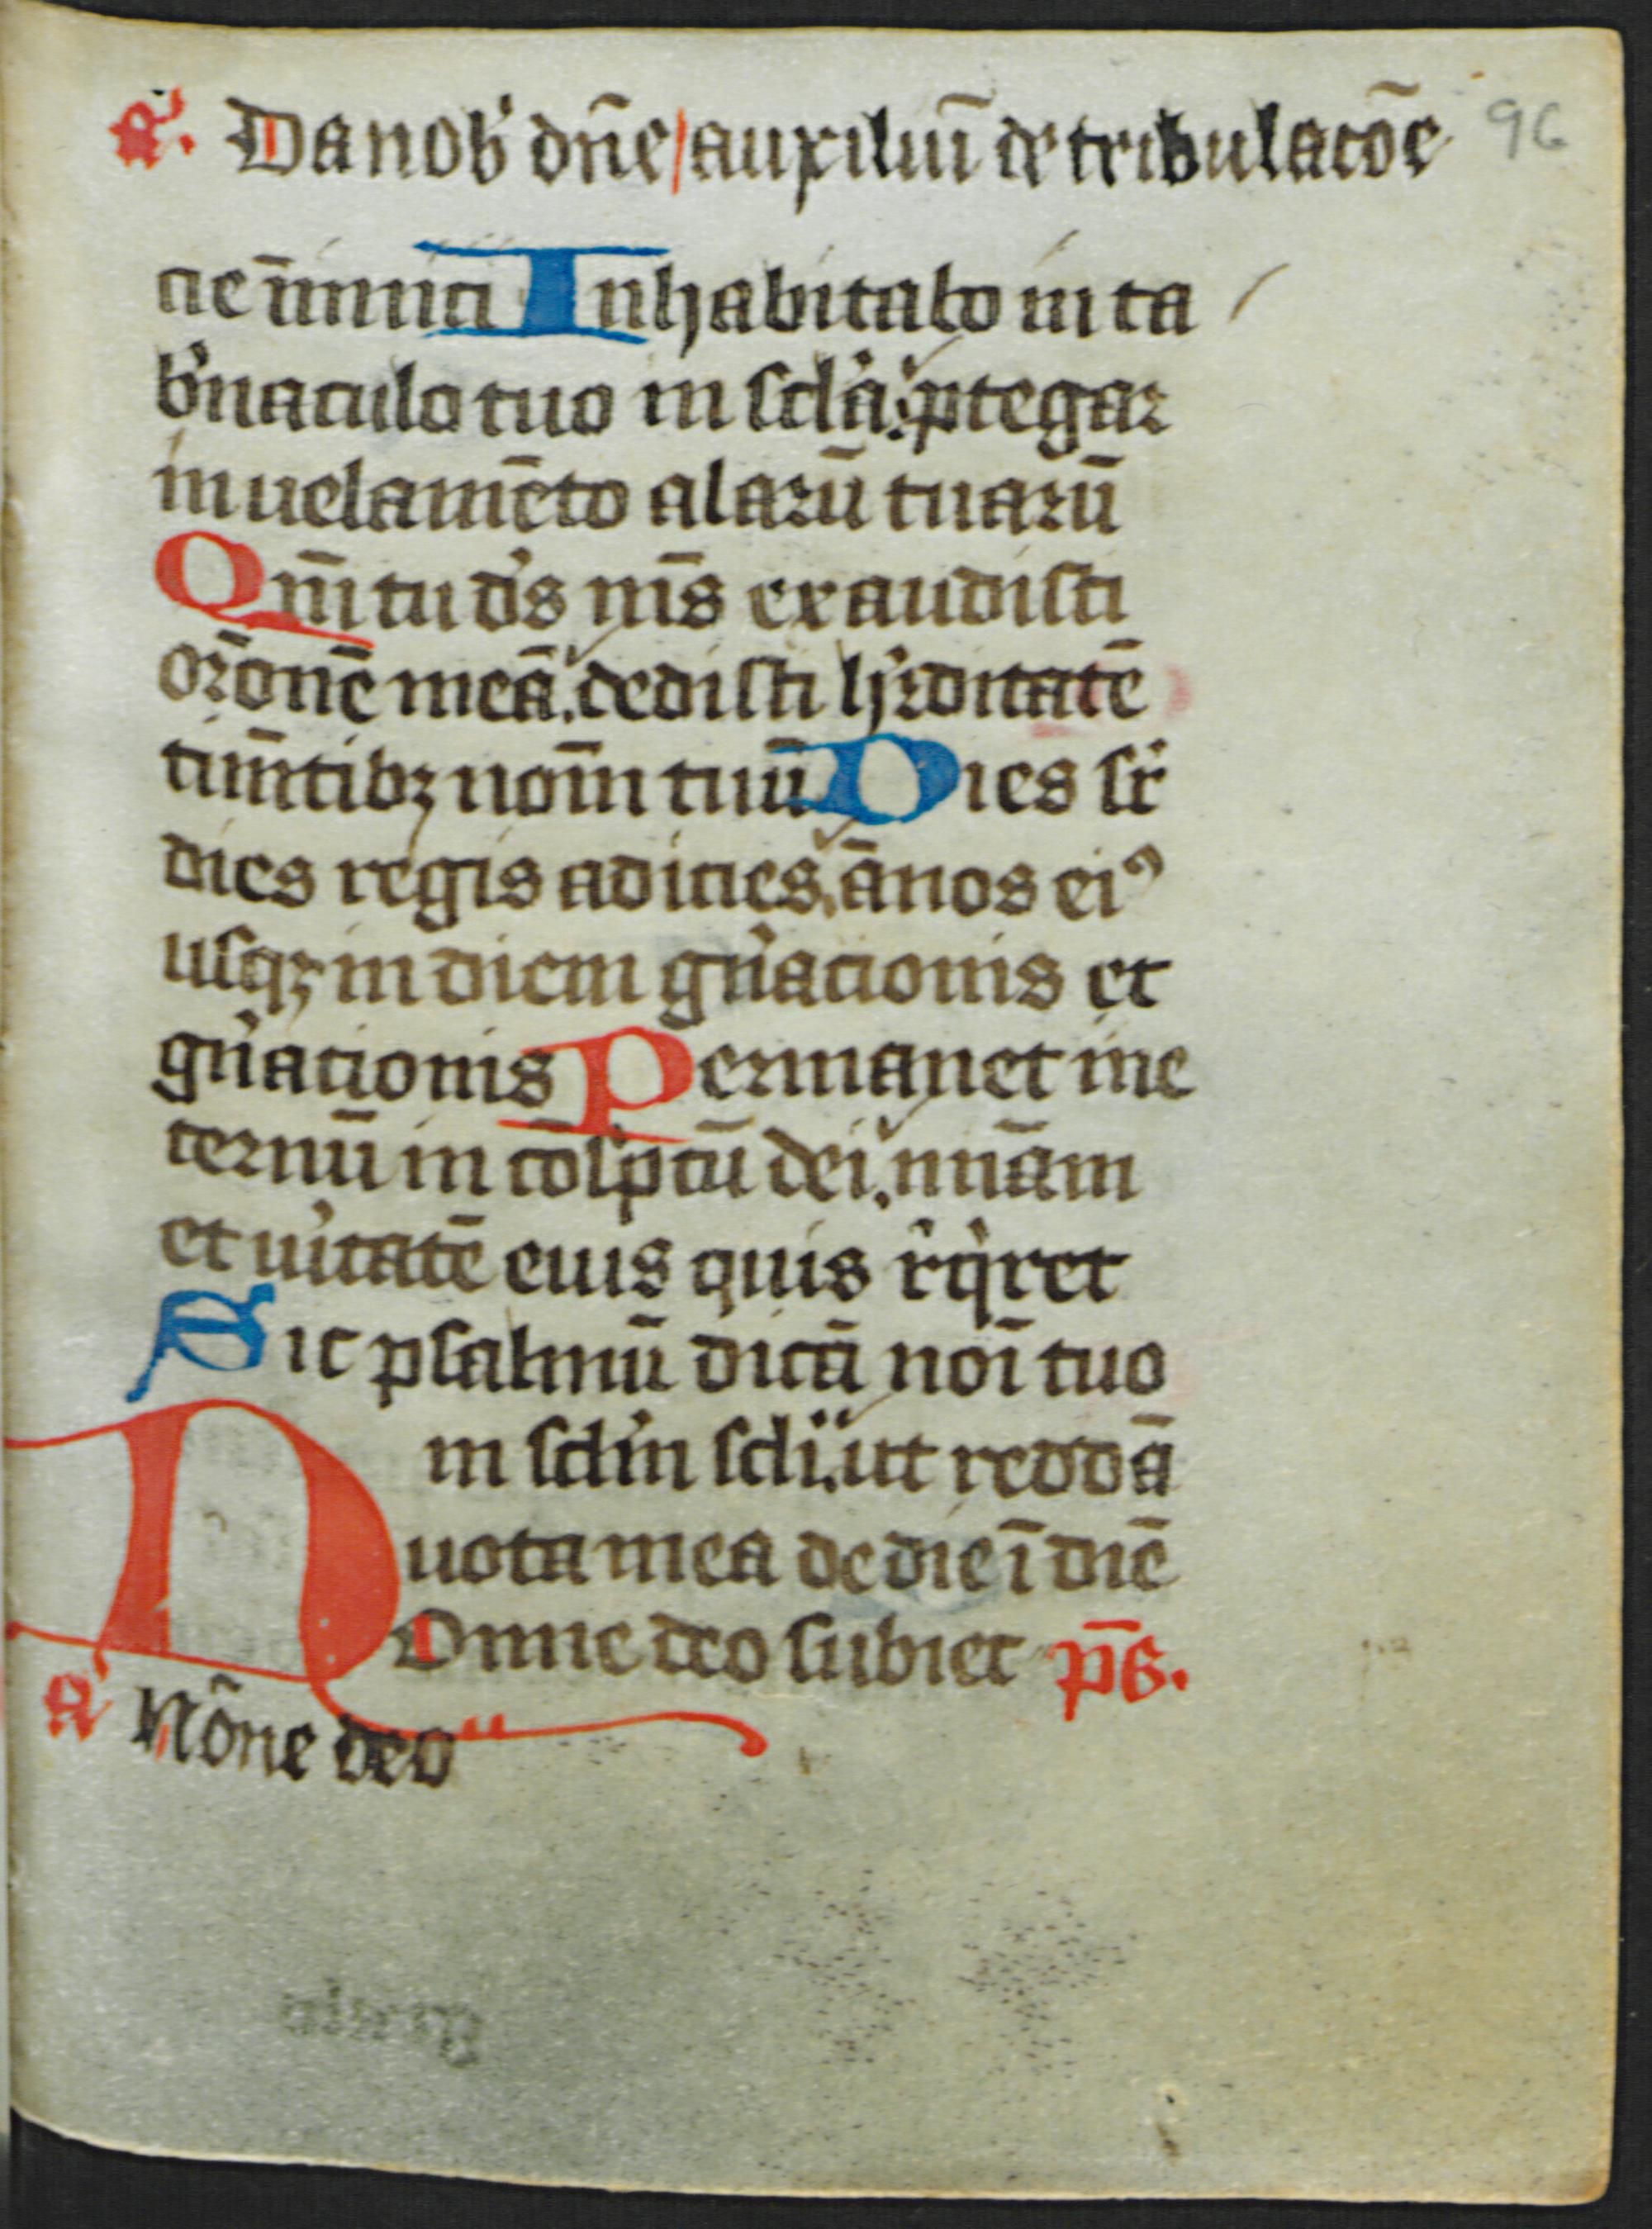 A'. Da nob' dn̄e/auxiliū de tribulacōe 96
cie īnimici Inhabitabo in ta
b'naculo tuo in scl'a: ꝓtegar
in uelamēto alarū tuarū
Qm̄ tu d's m̄s exaudisti
or̄onē meā. dedisti h'rditatē
tim̄tibꝫ nom̄ tuū Dies sr'
dies regis adicies, ānos eiꝯ
usqꝫ in diem gn'acionis et
gn'acionis Permanet in e
ternū in cōsp̄tū dei. mīam
et u'itatē eius quis r'q'ret
Sic psalmū dicā nōi tuo
in scl'm scl'i: ut reddā
uota mea de die ī diē
Nonne deo subiet p̄s.
A' Nōne deo